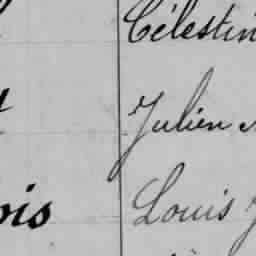 Célestin
Julien
ois Louis